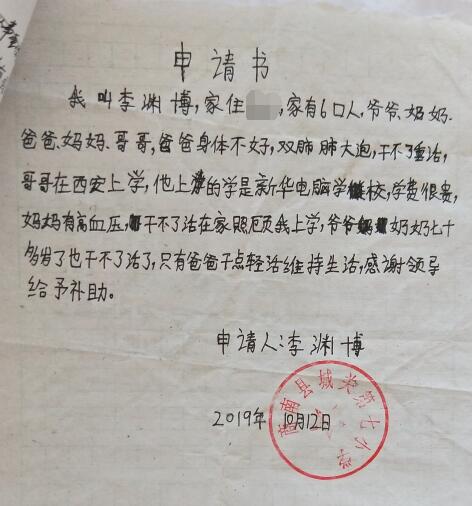 申请书
我叫李渊博，家住，家有6口人，爷爷、奶奶、
爸爸、妈妈、哥哥，爸爸身体不好，双肺肺大泡，干不了重活，
哥哥在西安上学，他上的学是新华电脑学校，学费很贵，
妈妈有高血压，干不了活在家照顾我上学，爷爷奶奶七十
多岁了也干不了活了，只有爸爸干点轻活维持生活，感谢领导
给予补助。
申请人：李渊博
2019年10月12日
南县城关第七小学